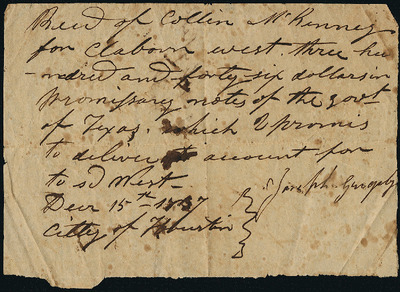 Recd of Collin McKinney
for Claborn west three hu
-ndred and forty-six dollars in
promissary notes of the govt
of Texas. which I promis
to deliver account for
to sd West-
Decr 15th 1837
Citty of Houston
Joseph Grigsby